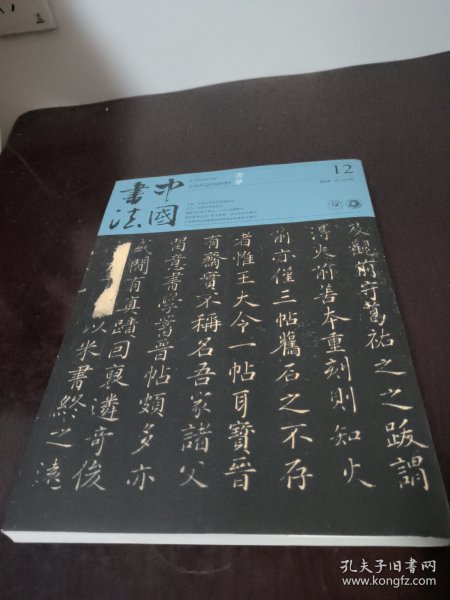 中國
書法
Chinese
Calligraphy
書學
12
及觀前守葛祐之之跋謂
得火前善本重刻則知火
前亦僅三帖舊石之不存
者惟王大令一帖耳寶晉
有齋實不稱名吾家諸父
意書學蓄晉帖頗多亦
或閒有真蹟因裒遴奇俊
以米書終之遠
孔夫子旧书网
www.kongfz.com